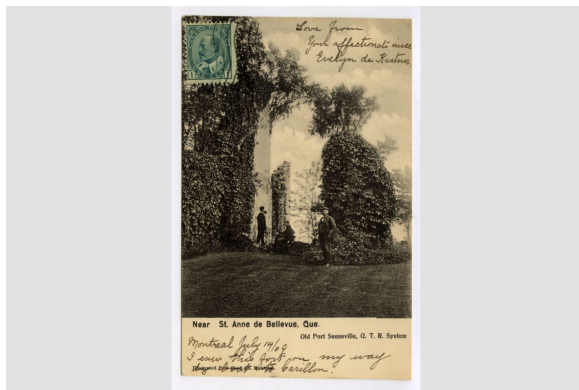 1
Love from
Your affectionate niece
Evelyn de Kastner
Near St. Anne de Bellevue, Que.
Old Fort Senneville, G. T. R. System
Montreal July 14/06
I saw this fort on my way
to Carillon.